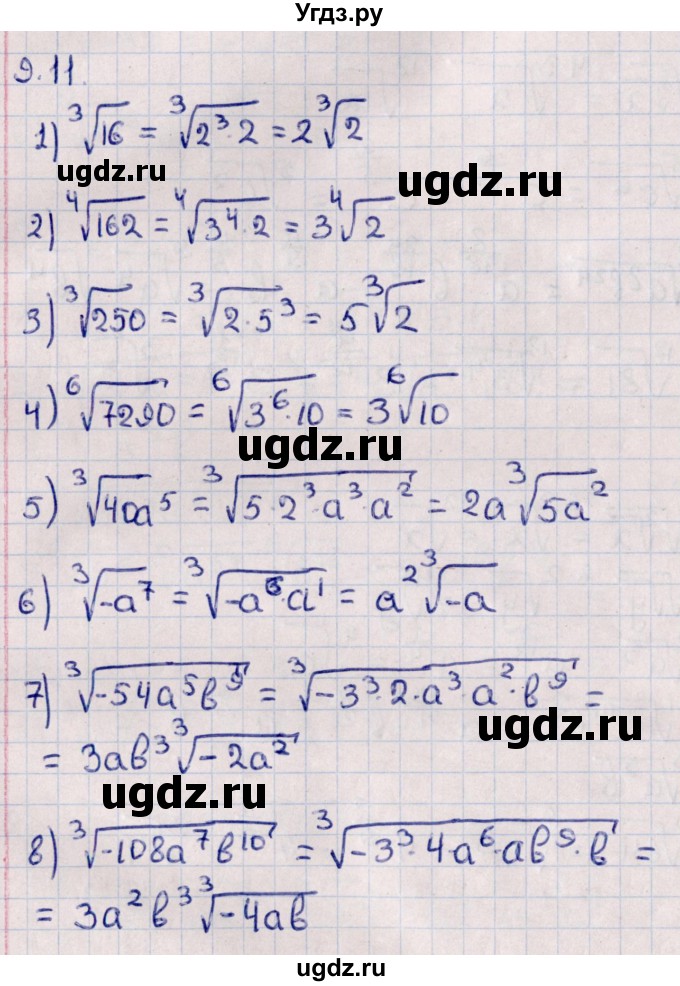 Угдз.ру
9.11.
1) ∛16 = ∛(2³·2) = 2∛2
ugdz.ru
ugdz.ru
2) ∜162 = ∜(3⁴·2) = 3∜2
3) ∛250 = ∛(2·5³) = 5∛2
4) ⁶√7290 = ⁶√(3⁶·10) = 3⁶√10
ugdz.ru
5) ∛(40a⁵) = ∛(5·2³·a³·a²) = 2a∛(5a²)
6) ∛(-a⁷) = ∛(-a⁶·a¹) = a²∛(-a)
7) ∛(-54a⁵b⁹) = ∛(-3³·2·a³·a²·b⁹) =
ugdz.ru
= 3ab³∛(-2a²)
ugdz.ru
8) ∛(-108a⁷b¹⁰) = ∛(-3³·4·a⁶·ab⁹·b) =
= 3a²b³∛(-4ab)
ugdz.ru